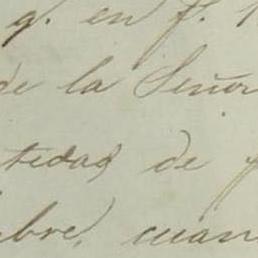 g. en f. 1
de la Señor
tidad de p
bre, cuan